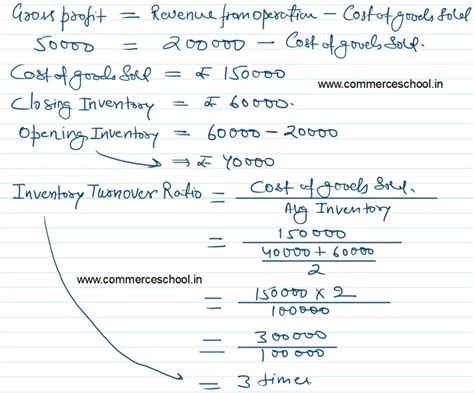 Gross profit = Revenue from operation - Cost of goods Sold
50000 = 200000 - Cost of goods Sold.
Cost of goods Sold = ₹ 150000
www.commerceschool.in
Closing Inventory = ₹ 60000.
Opening Inventory = 60000 - 20000
⇒ ₹ 40000
Inventory Turnover Ratio = Cost of goods Sold.
Avg Inventory
= 150000
40000 + 60000
2
www.commerceschool.in
= 150000 x 2
100000
= 300000
100000
= 3 times